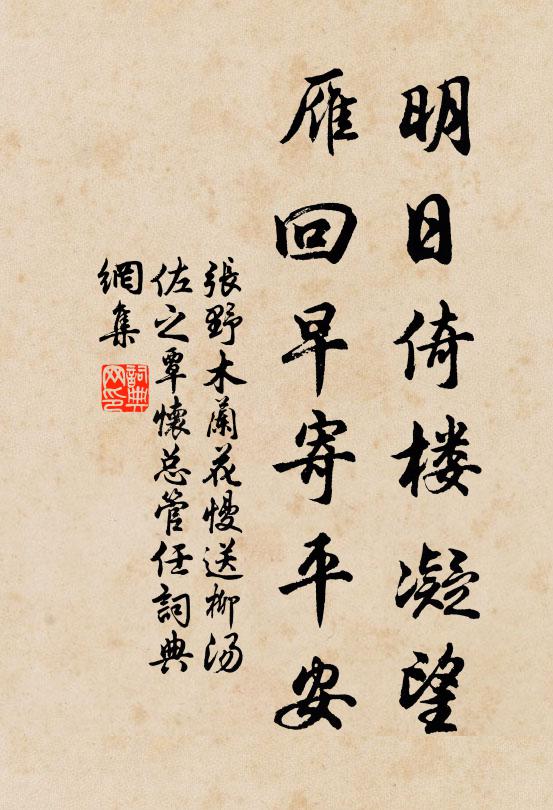 明日倚楼凝望
雁回早寄平安
張野木蘭花慢送柳汤
佐之覃懷总管任詞典
網集
詞典网印